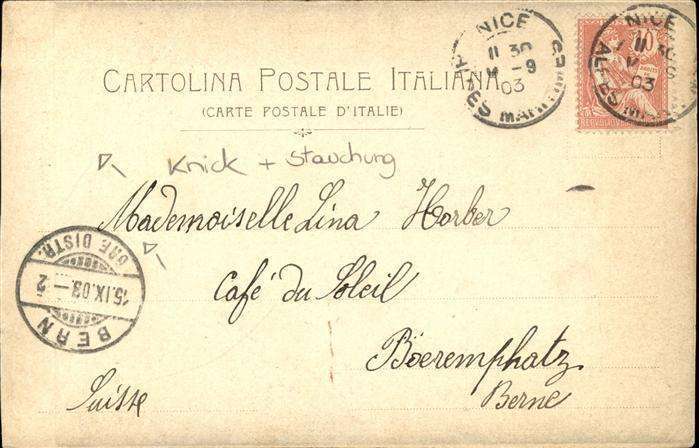 NICE
11 30
9
03
ALPES MARMES
NICE
11 30
03
ALPES M
10
CARTOLINA POSTALE ITALIANA
(CARTE POSTALE D'ITALIE)
Knick + Stauchung
Mademoiselle Lina Horber
Café du Soleil
Böeremphatz
Berne
Suisse
BERN
15.IX.03-2
DISTR.